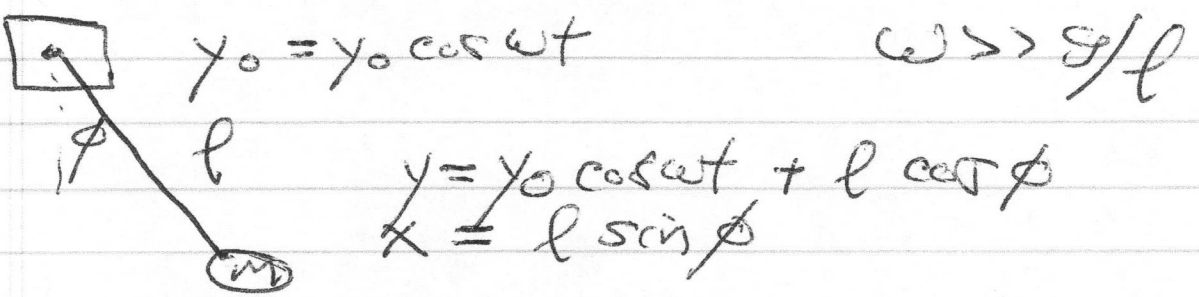 y₀ = y₀ cos ωt    ω >> g/l
φ    l
y = y₀ cos ωt + l cos φ
x = l sin φ
m